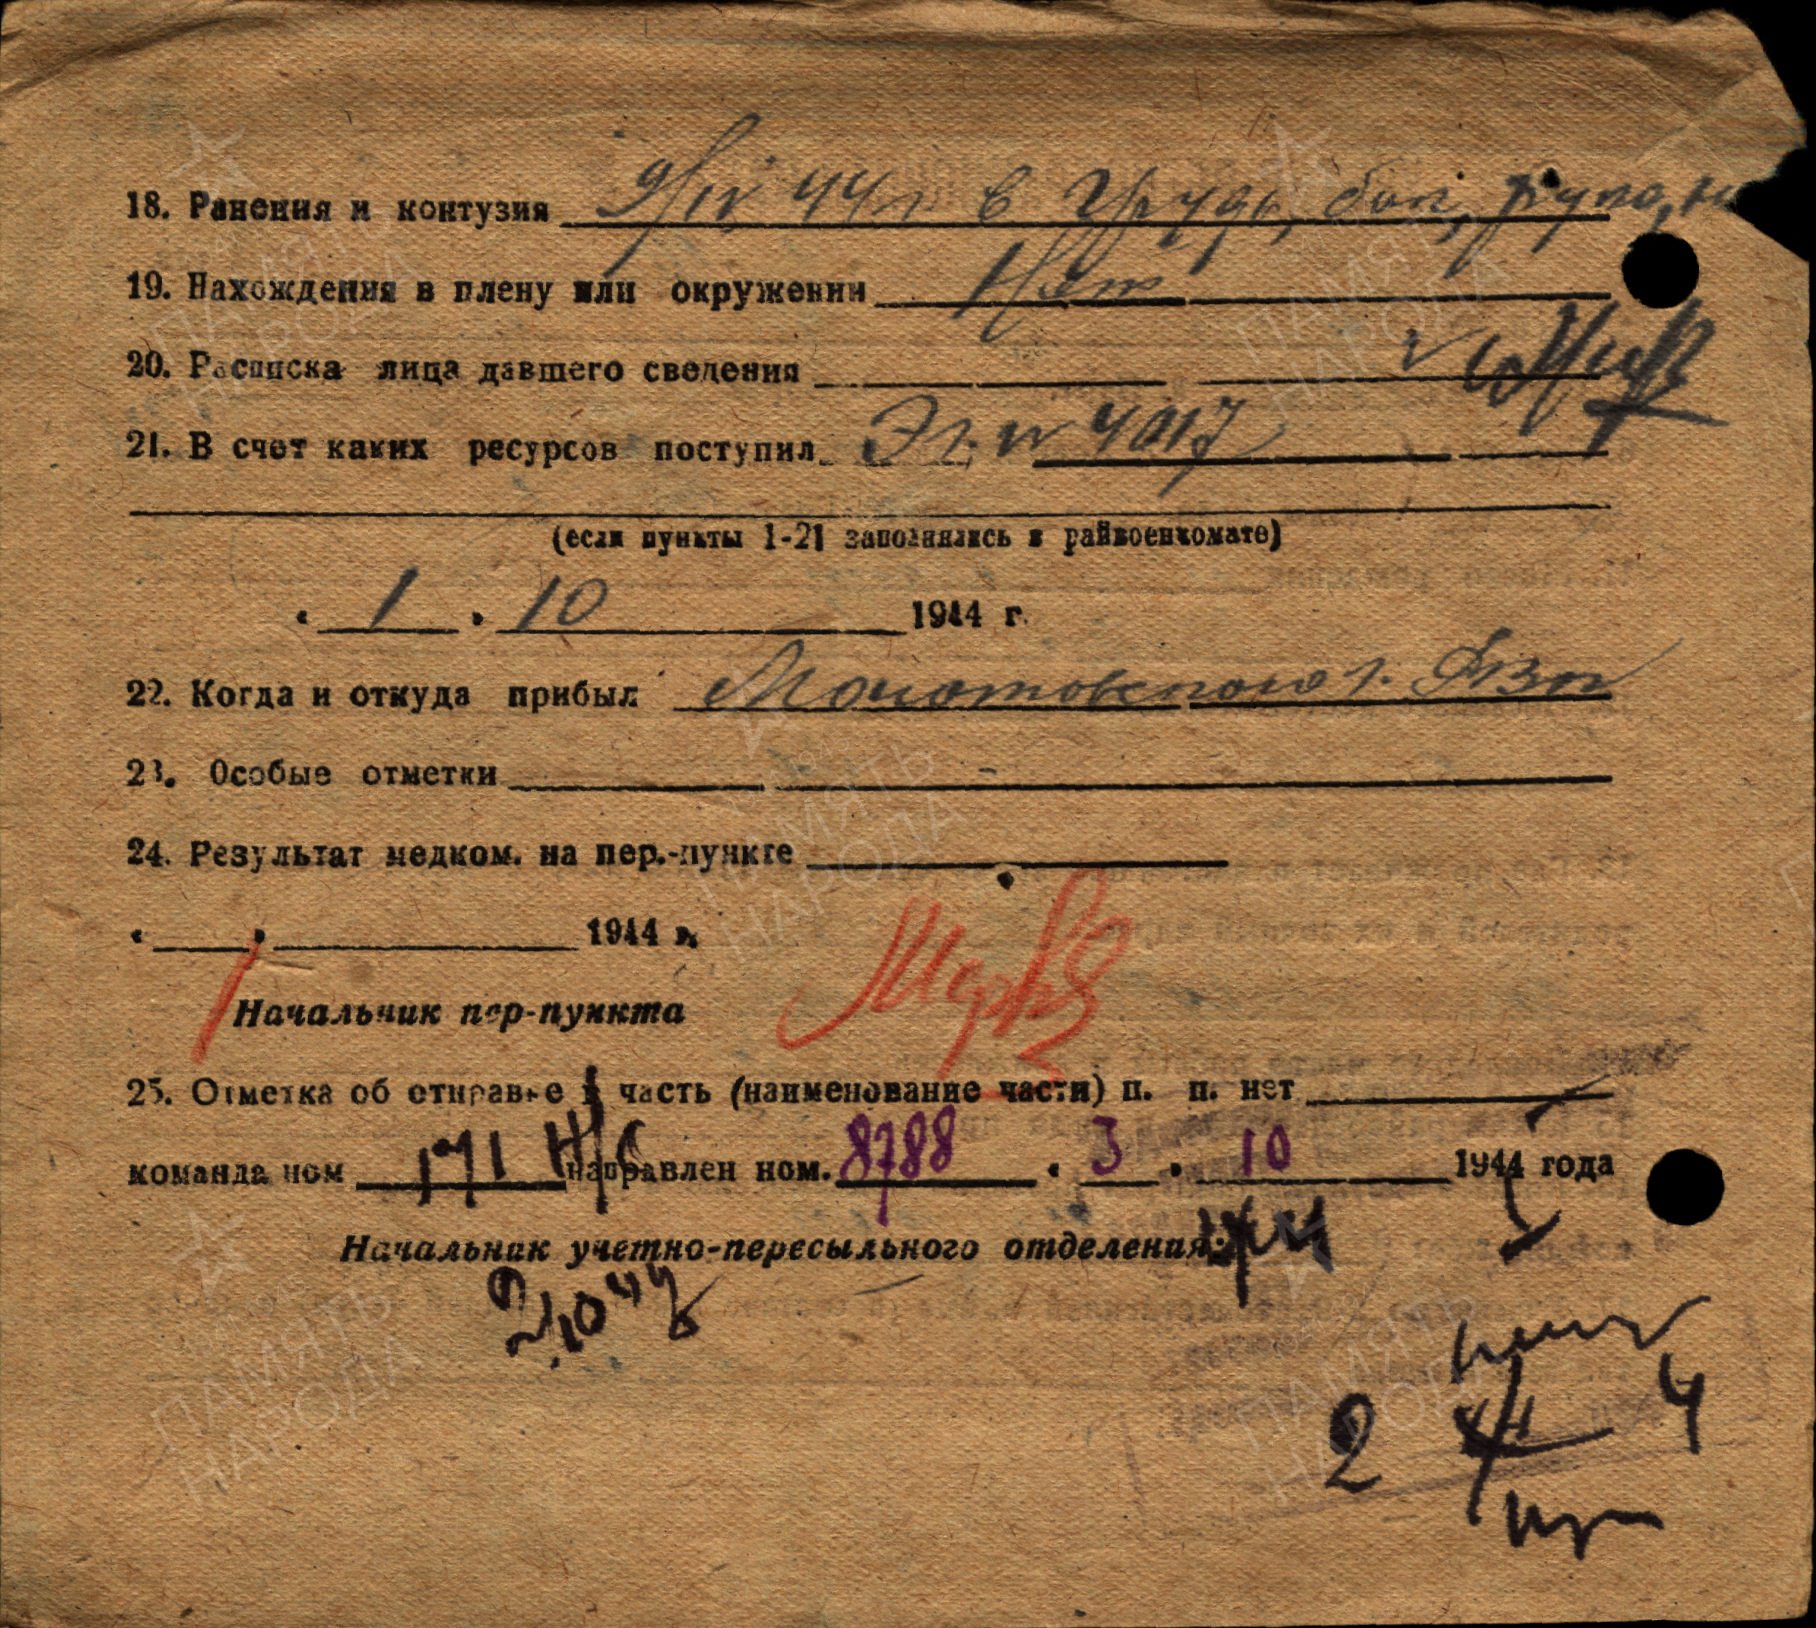 18. Ранения и контузия 9/IV 44 г в грудь, бок, рука, н
19. Нахождения в плену или окружении Нет
20. Расписка лица давшего сведения
21. В счет каких ресурсов поступил Эг. N 4017
(если пункты 1-21 заполнялись в райвоенкомате)
« 1 » 10 1944 г.
22. Когда и откуда прибыл
23. Особые отметки
24. Результат медком. на пер.-пункте
« » 1944 г.
Начальник пер-пункта
25. Отметка об отправке в часть (наименование части) п. п. нет
команда ном 171 Н/С направлен ном. 8788 « 3 » 10 1944 года
Начальник учетно-пересыльного отделения:
2/10 44
2 4
ПАМЯТЬ НАРОДА
ПАМЯТЬ НАРОДА
ПАМЯТЬ НАРОДА
ПАМЯТЬ НАРОДА
ПАМЯТЬ НАРОДА